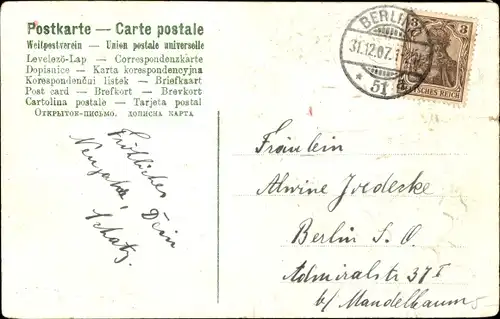 Postkarte — Carte postale
Weltpostverein — Union postale universelle
Levelező-Lap — Correspondenzkarte
Dopisnice — Karta korespondencyjna
Korespondenční listek — Briefkaart
Post card — Brefkort — Brevkort
Cartolina postale — Tarjeta postal
Открытое-письмо. дописна карта
Fröhliches
Neujahr, Dein
Schatz.
BERLIN
31.12.07.
* 51
3 3
DEUTSCHES REICH
Fräulein
Alwine Joedecke
Berlin S. O.
Admiralstr 37 I
b/ Mandelbaum